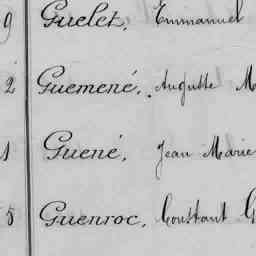 9 Guelet, Emmanuel
2 Guemené, Auguste M
1 Guené, Jean Marie
5 Guenroc, Constant G